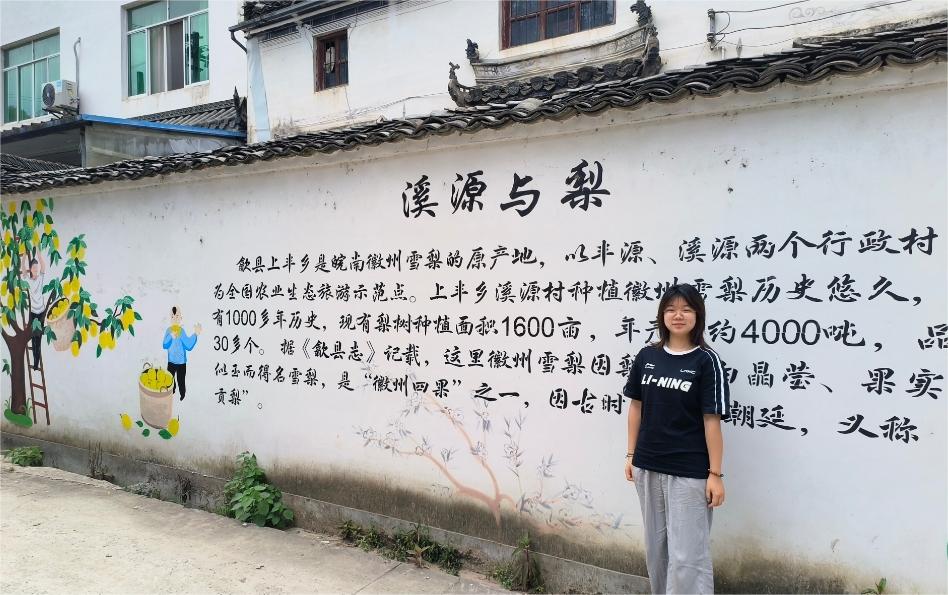 溪源与梨
歙县上丰乡是皖南徽州雪梨的原产地，以丰源、溪源两个行政村
为全国农业生态旅游示范点。上丰乡溪源村种植徽州雪梨历史悠久，
有1000多年历史，现有梨树种植面积1600亩，年 约4000吨，品
30多个。据《歙县志》记载，这里徽州雪梨因 晶莹、果实
似玉而得名雪梨，是“徽州四果”之一，因古时 朝廷，头称
贡梨”。
LI-NING